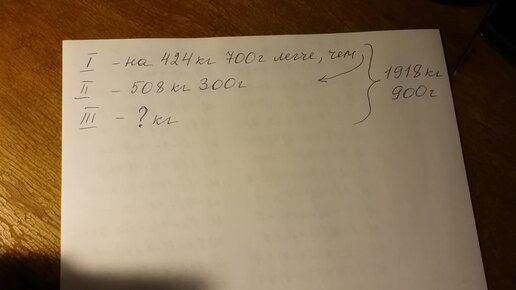 I - на 424 кг 700 г легче, чем
II - 508 кг 300 г
III - ? кг
1918 кг
900 г